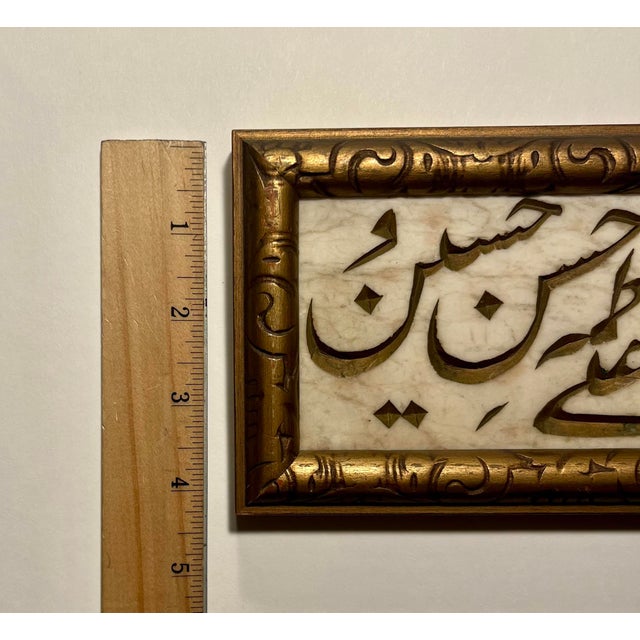 1
2
3
4
5
علی حسن حسین